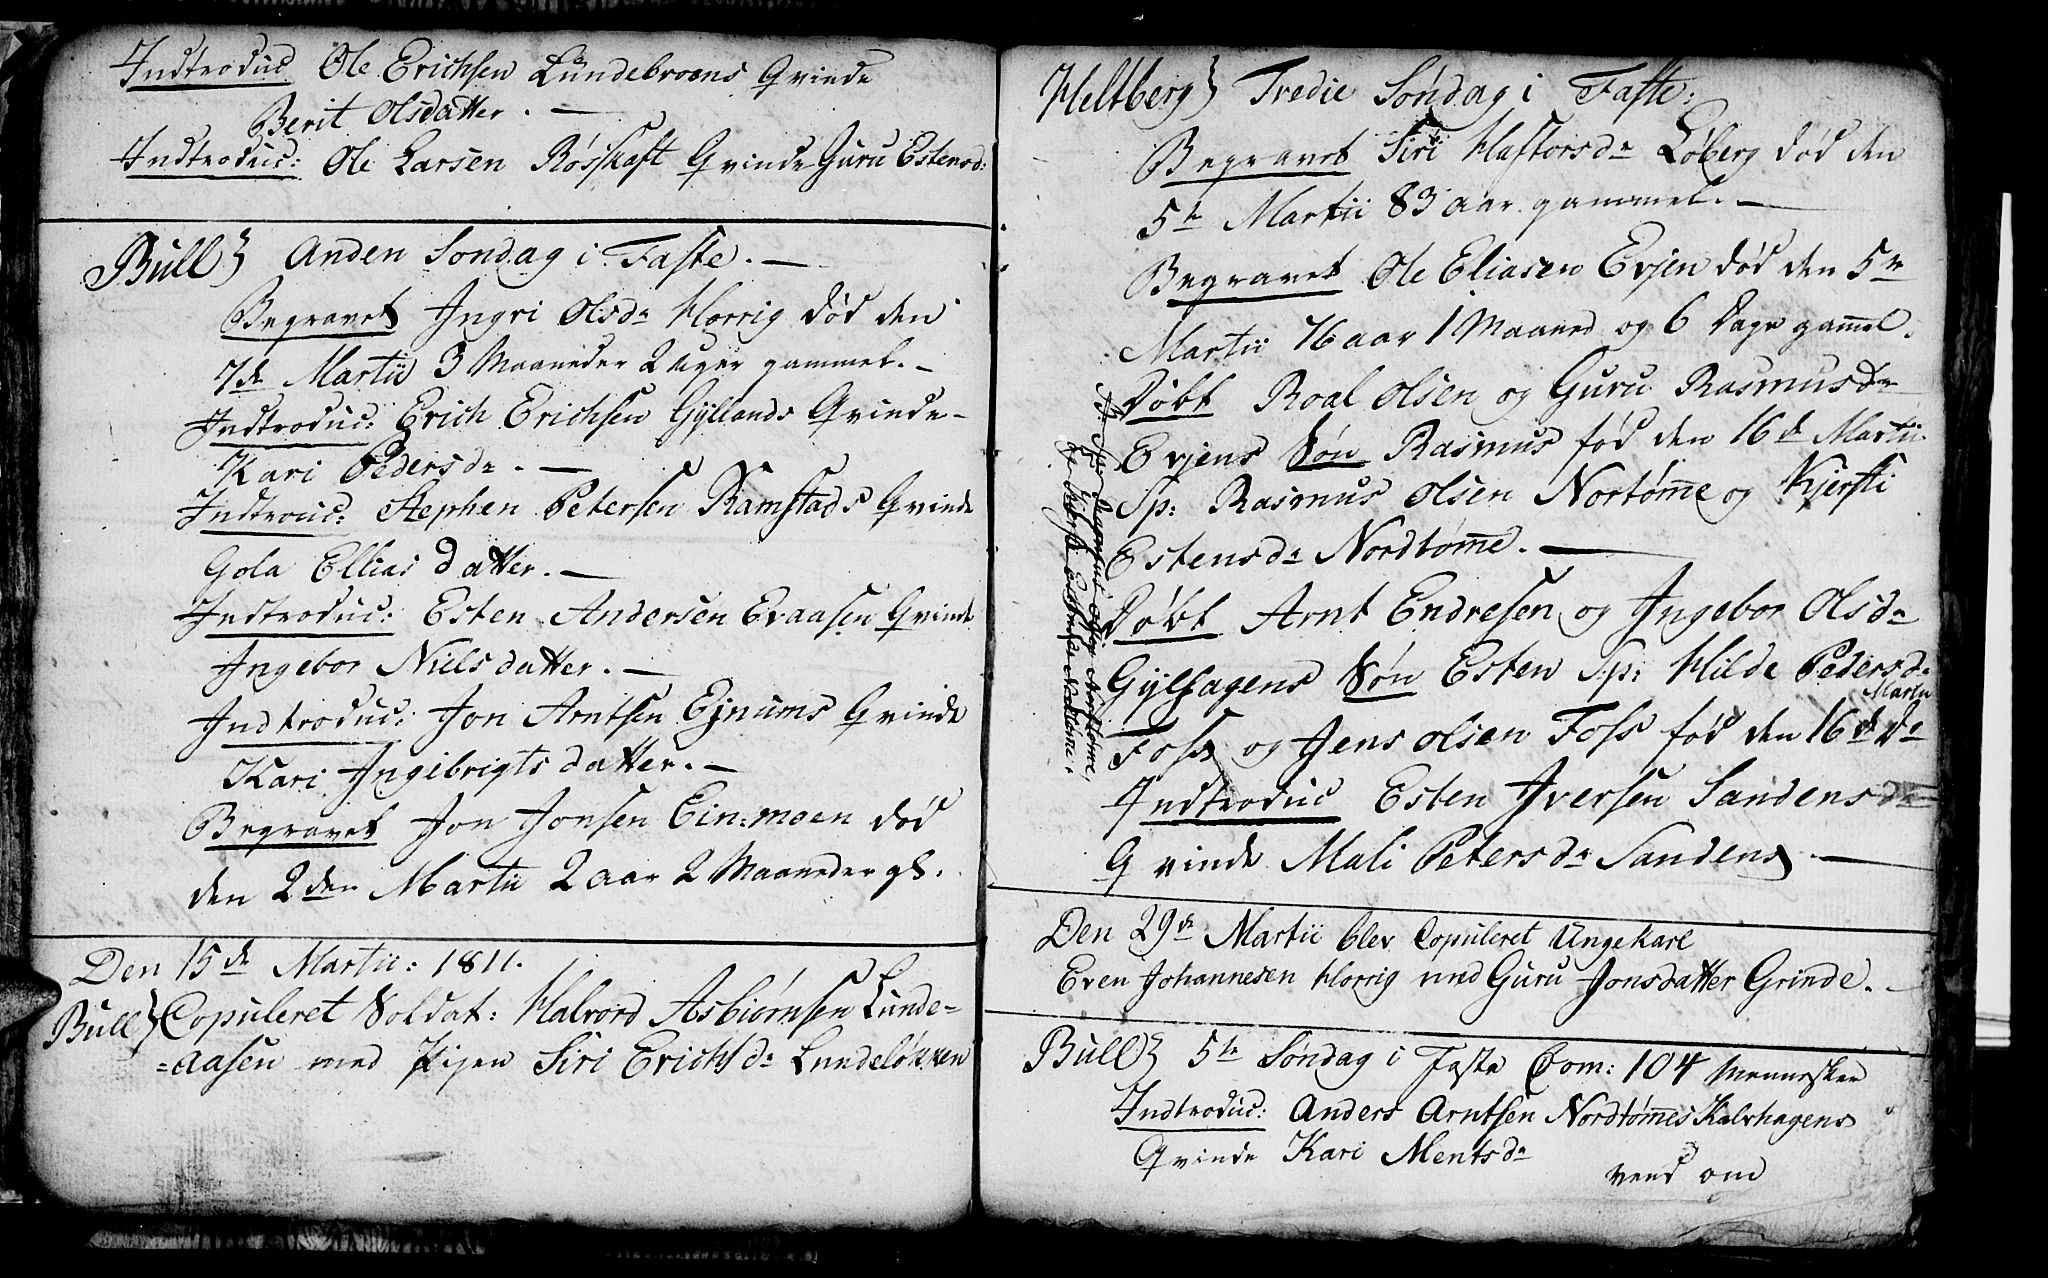 Indtroduc Ole Erichsen Lundebroens Qvinde
Berit Olsdatter. —
Indtroduc: Ole Larsen Røsskaft Qvinde Guru Estensd:
Bull} Anden Søndag i Faste. —
Begravet Ingri Olsdr Horrig død den
7de Martii 3 Maaneder 2 Uger gammel. —
Indtroduc: Erich Erichsen Gyllands Qvinde —
Kari Pedersdr. —
Indtrouc: Stephen Petersen Ramstads Qvinde
Gola Ellias datter. —
Indtroduc: Esten Andersen Evaasen Qvinde
Ingebor Nielsdatter. —
Indtroduc: Jon Arntsen Ejnums Qvinde
Kari Ingibrigtsdatter. —
Begravet Jon Jonsen Ein=moen død
den 2den Martii 2 aar 2 Maaneder gl.
Den 15de Martii: 1811.
Bull} Copuleret Soldat: Halvord Asbiørnsen Lunde=
=aasen med Pigen Siri Erichsdr Lundeløkken
Heltberg} Tredie Søndag i Faste:
Begravet Siri Hastorsdr Løberg død den
5te Martii 83 aar gammel. —
Begravet Ole Eliasen Evjen død den 5te
Martii 76 aar 1 Maaned og 6 Dage gammel.
Døbt Roal Olsen og Guru Rasmusdr
Evjens Søn Rasmus fød den 16de Martii
Sp: Rasmus Olsen Nortømme og Kjersti
Estensdr Nordtømme. —
Døbt Arnt Endresen og Ingebor Olsdr
Gylhagens Søn Esten Sp: Hilde Pedersdr
Foss og Jens Olsen Foss fød den 16de Martii
Indtroduc Esten Iversen Sandens
Qvinde Mali Petersdr Sandens —
Den 29de Martii blev Copuleret Ungekarl
Even Johannesen Horrig med Guru Jonsdatter Grinde. —
Bull} 5te Søndag i Faste Com: 104 Mennesker
Indtroduc: Anders Arntsen Nordtømmes Kalvhagens
Qvinde Kari Mentsdr
vend om